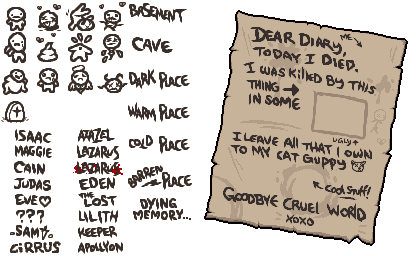 BASEMENT
CAVE
DARK PLACE
WARM PLACE
COLD PLACE
BARREN PLACE
DYING
MEMORY...
ISAAC
MAGGIE
CAIN
JUDAS
EVE♡
???
SAMS
CiRRUS
AZAZEL
LAZARUS
LAZARUS
EDEN
THE
LOST
LILITH
KEEPER
APOLLYON
DEAR DIARY,
ME
TODAY I DIED.
I WAS KiLLED BY THIS
THING →
IN SOME
UGLY↑
I LEAVE ALL THAT I OWN
TO MY CAT GUPPY
↖ COOL STUFF!
GOODBYE CRUEL WORLD
XOXO